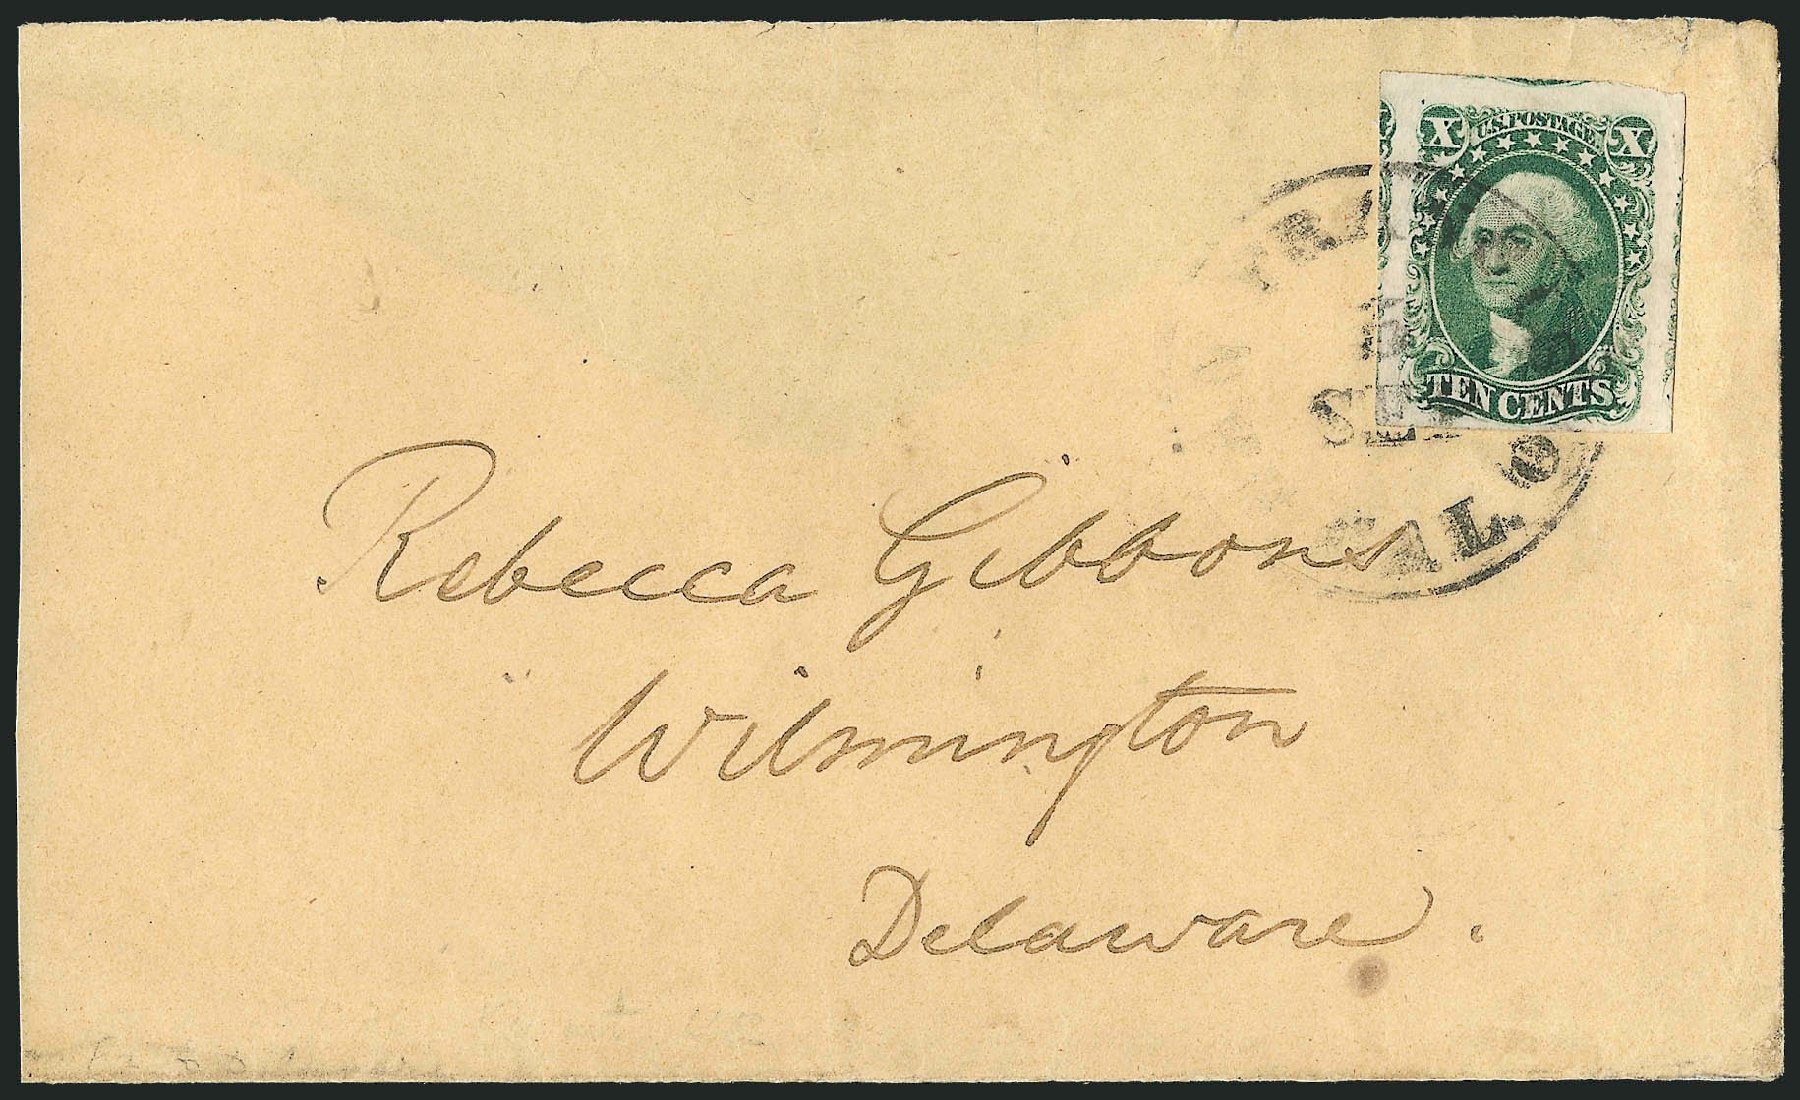 X U.S. POSTAGE X
5
SEP
TEN CENTS
CAL.
Rebecca Gibbons
Wilmington
Delaware.